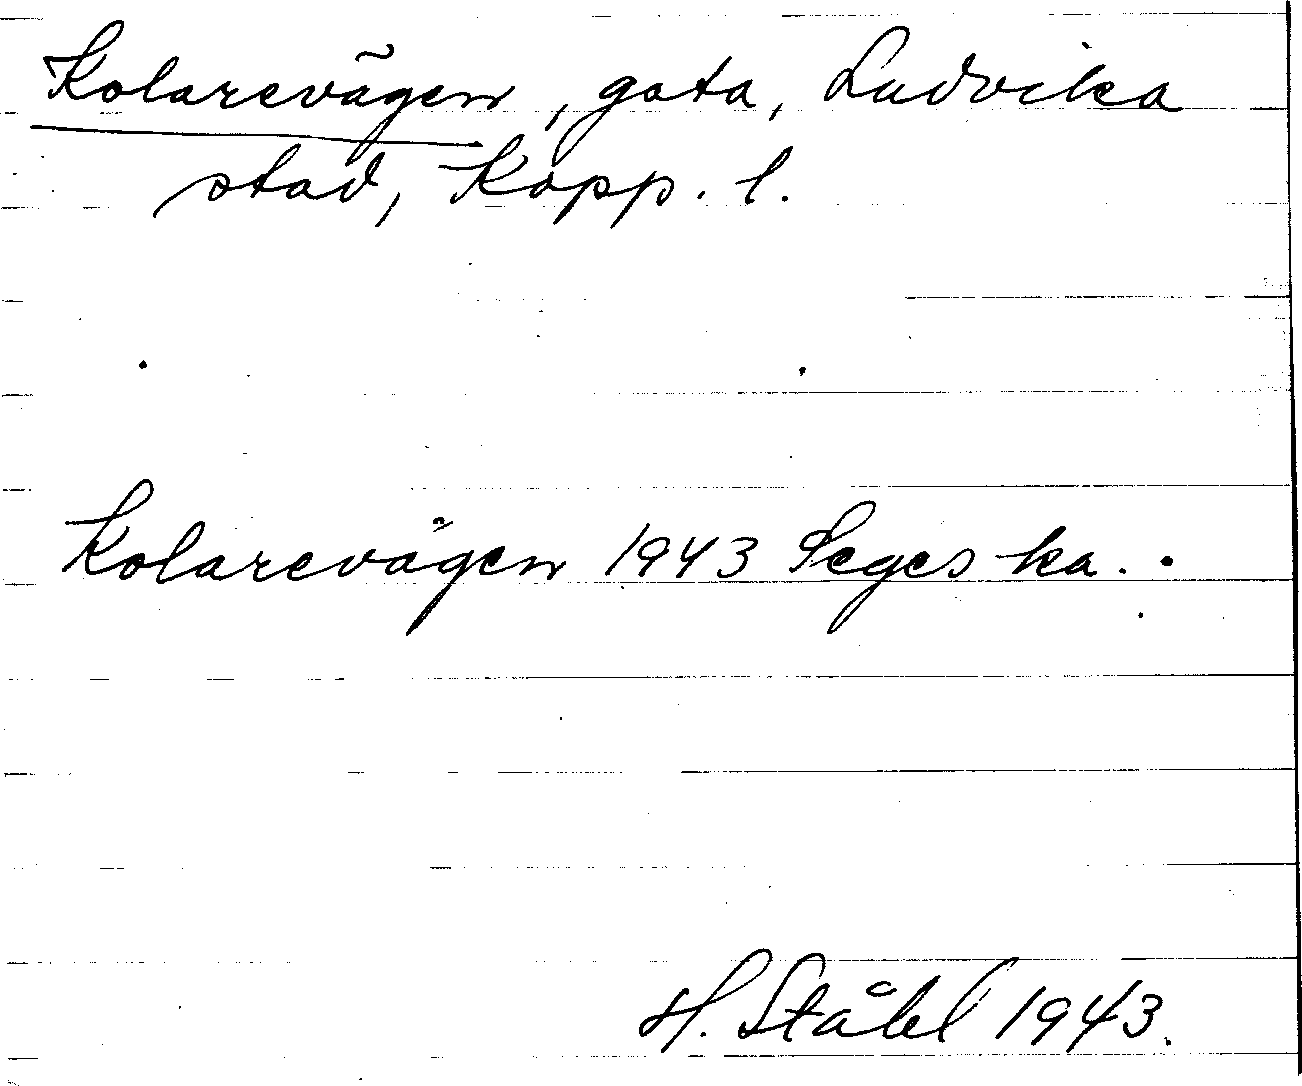 Kolarevägen, gata, Ludvika
stad, Kopp. l.
Kolarevägen 1943 Seges ka.
H. Ståhl 1943.